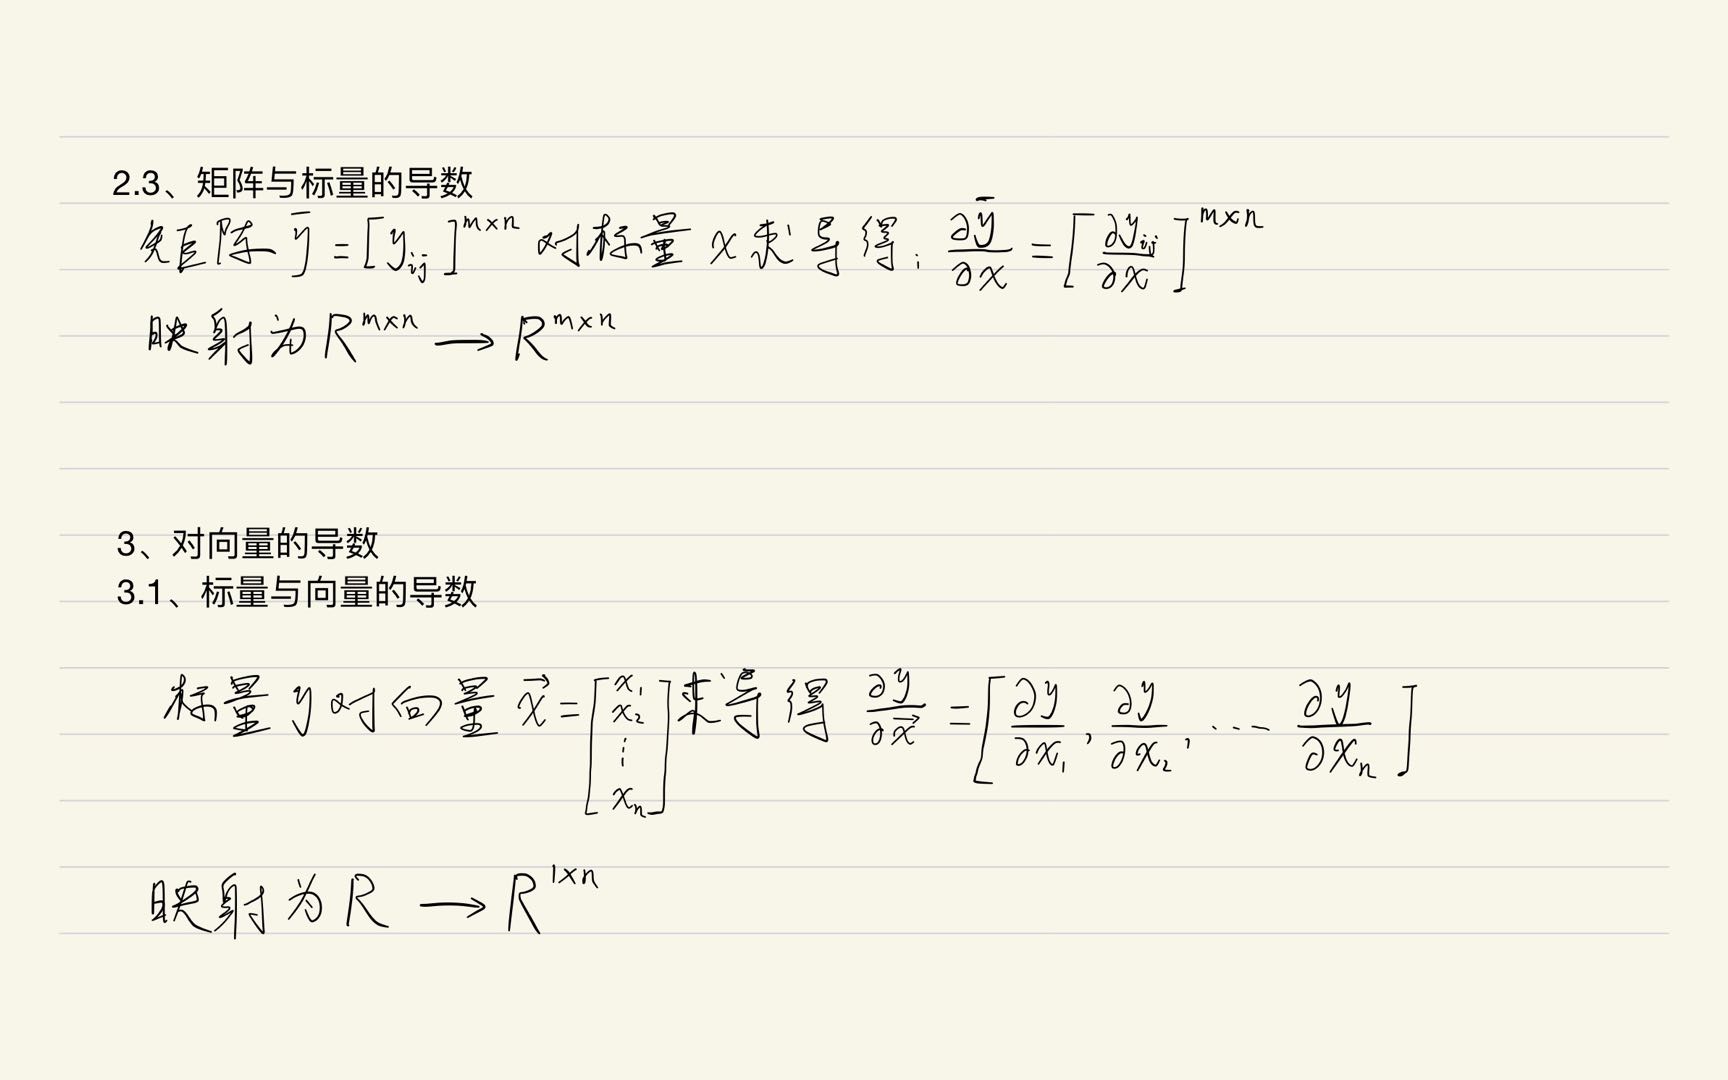 2.3、矩阵与标量的导数
矩阵 ȳ = [yᵢⱼ]^{m×n} 对标量 x 求导得: ∂ȳ/∂x = [∂yᵢⱼ/∂x]^{m×n}
映射为 R^{m×n} → R^{m×n}
3、对向量的导数
3.1、标量与向量的导数
标量 y 对向量 x⃗ = [x₁ x₂ ⋮ xₙ] 求导得 ∂y/∂x⃗ = [∂y/∂x₁, ∂y/∂x₂, ⋯ ∂y/∂xₙ]
映射为 R → R^{1×n}